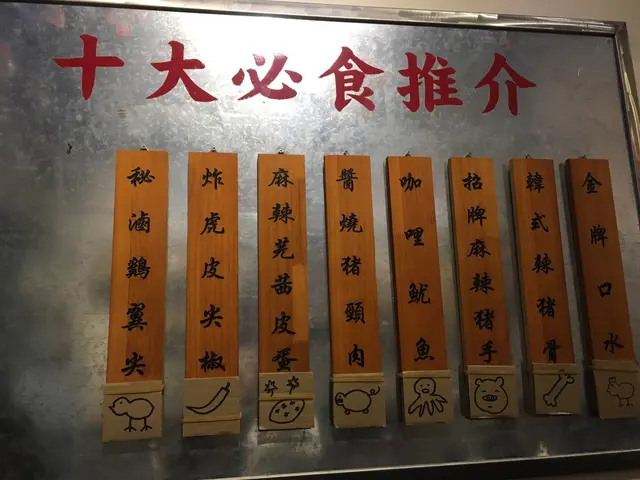 十大必食推介
秘滷鷄翼尖
炸虎皮尖椒
麻辣芫茜皮蛋
醬燒猪頸肉
咖哩魷魚
招牌麻辣猪手
韓式辣猪骨
金牌口水